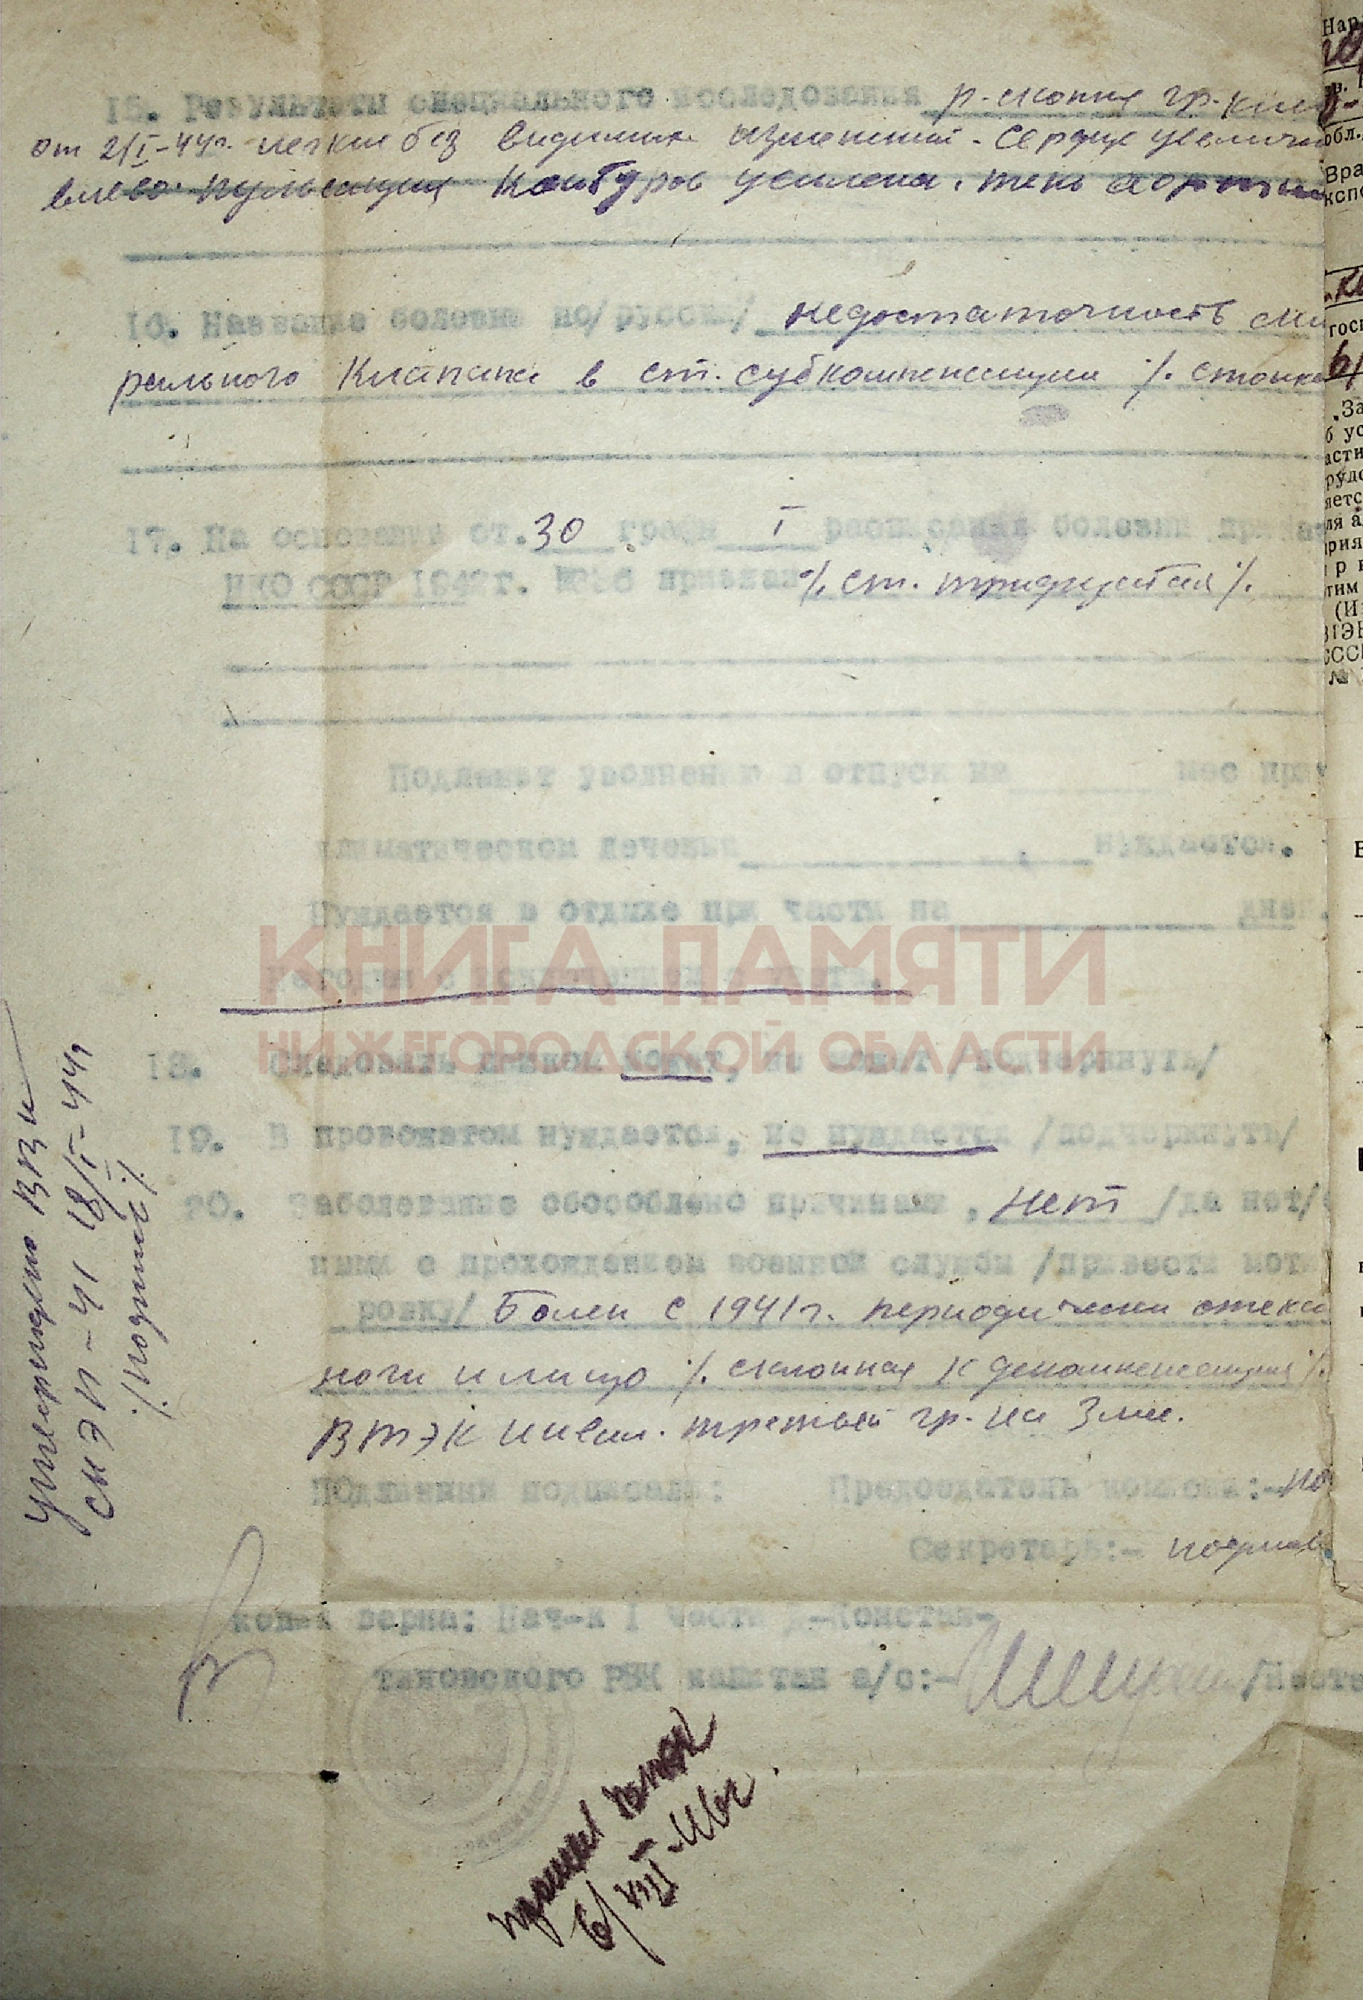 15. Результаты специального исследования р-скопия гр. кле
от 2/I-44г. легкие без видимых изменений. Сердце увеличе
влево. пульсация контуров усилена. тень аорты
16. Название болезни по/русски/ недостаточность ми
рального клапана в ст. субкомпенсации /. стойка
17. На основании ст. 30 графы I расписания болезни приказ
НКО СССР 1942 г. №336 признан /. ст. тридцатая /.
Подлежит уволнению в отпуск на мес при
климатическом лечении , нуждается.
Нуждается в отдыхе при части на дней.
Негоден с исключением с учета.
18. Следовать пешком может, не может /подчеркнуть/
19. В провожатом нуждается, не нуждается /подчеркнуть/
20. Заболевание обособлено причинами, нет /да нет/
ными с прохождением военной службы /привести моти
ровку/ Болен с 1941г. периодически отека
ноги и лицо /. склонная к декомпенсации /.
ВТЭК инвал. третьей гр. на 3 мес.
Подлинник подписали: Председатель комисии:- по
Секретарь:- подпись
копия верна: Нач-к I части Д-Констан-
тиновского РВК капитан а/с:- /Песте
Утверждено ВВК
СМЭП-41 18/I-44г
/. подпись /.
6/VIII-46г
КНИГА ПАМЯТИ
НИЖЕГОРОДСКОЙ ОБЛАСТИ
Нар
обл.
Вра
эксп
госп
За
б ус
асти
рудо
яетс
ля а
рия
тим
(И
ВТЭК
СССР
№